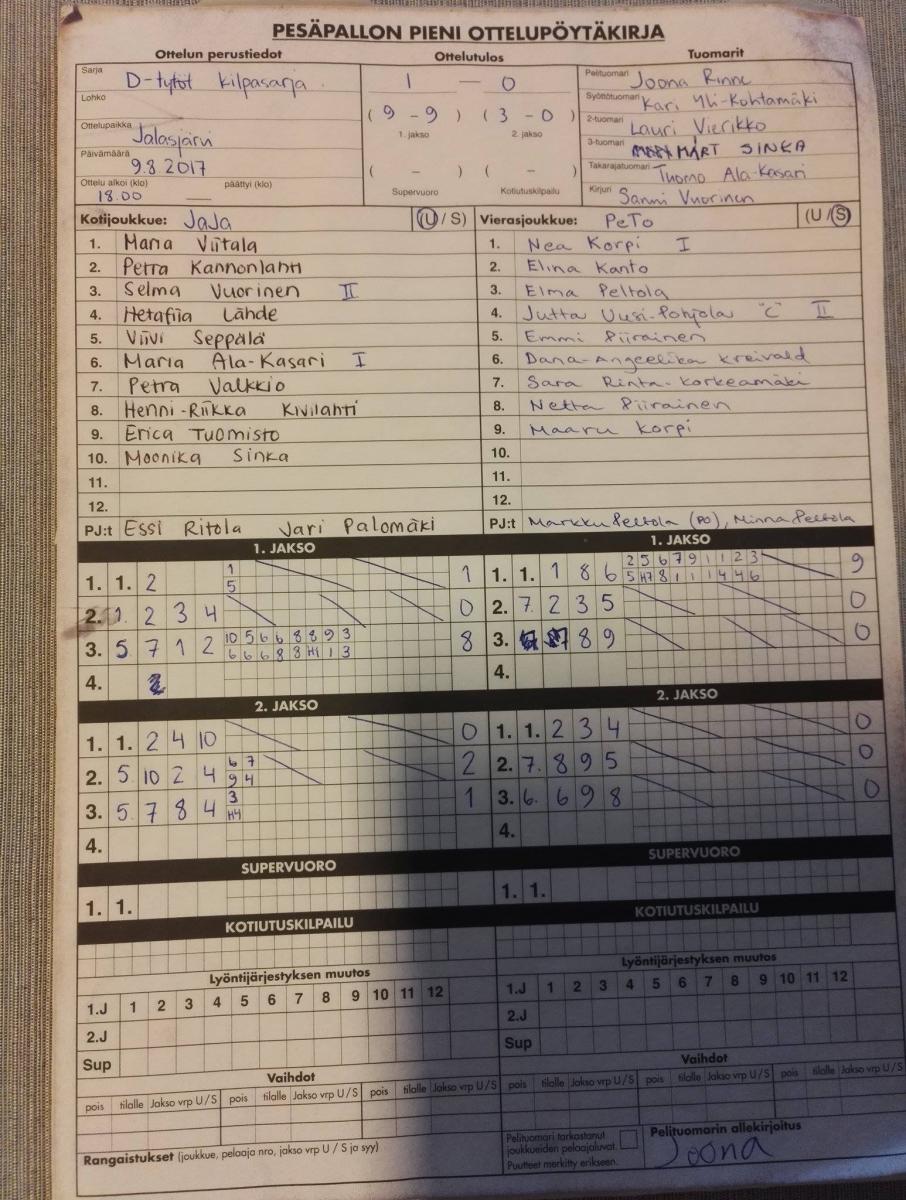 PESÄPALLON PIENI OTTELUPÖYTÄKIRJA
Ottelun perustiedot Ottelutulos Tuomarit
Sarja D-tytöt kilpasarja
Lohko
Ottelupaikka Jalasjärvi
Päivämäärä 9.8.2017
Ottelu alkoi (klo) päättyi (klo)
18.00 —
1 — 0
( 9 - 9 ) ( 3 - 0 )
1. jakso 2. jakso
( - ) ( - )
Supervuoro Kotiutuskilpailu
Pelituomari Joona Rinne
Syöttötuomari Kari Yli-Kohtamäki
2-tuomari Lauri Vierikko
3-tuomari MART SINKA
Takarajatuomari Tuomo Ala-Kasari
Kirjuri Sanni Vuorinen
Kotijoukkue: JaJa (U / S)
1. Maria Viitala
2. Petra Kannonlahti
3. Selma Vuorinen II
4. Hetafiia Lähde
5. Viivi Seppälä
6. Maria Ala-Kasari I
7. Petra Valkkio
8. Henni-Riikka Kivilahti
9. Erica Tuomisto
10. Moonika Sinka
11.
12.
PJ:t Essi Ritola Jari Palomäki
Vierasjoukkue: PeTo (U / S)
1. Nea Korpi I
2. Elina Kanto
3. Elma Peltola
4. Jutta Uusi-Pohjola "C" II
5. Emmi Piirainen
6. Dana-Angeelika Kreivald
7. Sara Rinta-Korkeamäki
8. Netta Piirainen
9. Maaru Korpi
10.
11.
12.
PJ:t Markku Peltola (PO), Minna Peltola
1. JAKSO
1. 1. 2 1 1
5
2. 1. 2 3 4 0
3. 5 7 1 2 10 5 6 6 8 8 9 3 8
6 6 6 8 8 H1 1 3
4.
1. JAKSO
1. 1. 1 8 6 2 5 6 7 9 1 1 2 3 9
5 H7 8 1 1 1 4 4 6
2. 7. 2 3 5 0
3. 8 9 0
4.
2. JAKSO
1. 1. 2 4 10 0
2. 5 10 2 4 6 7 2
9 4
3. 5 7 8 4 3 1
H4
4.
2. JAKSO
1. 1. 2 3 4 0
2. 7. 8 9 5 0
3. 6. 6 9 8 0
4.
SUPERVUORO
1. 1.
SUPERVUORO
1. 1.
KOTIUTUSKILPAILU
KOTIUTUSKILPAILU
Lyöntijärjestyksen muutos
1.J 1 2 3 4 5 6 7 8 9 10 11 12
2.J
Sup
Lyöntijärjestyksen muutos
1.J 1 2 3 4 5 6 7 8 9 10 11 12
2.J
Sup
Vaihdot
pois tilalle Jakso vrp U/S pois tilalle Jakso vrp U/S pois tilalle Jakso vrp U/S
Vaihdot
pois tilalle Jakso vrp U/S pois tilalle Jakso vrp U/S pois tilalle Jakso vrp U/S
Rangaistukset (joukkue, pelaaja nro, jakso vrp U / S ja syy)
Pelituomari tarkastanut
joukkueiden pelaajaluvat.
Puutteet merkitty erikseen.
Pelituomarin allekirjoitus
Joona